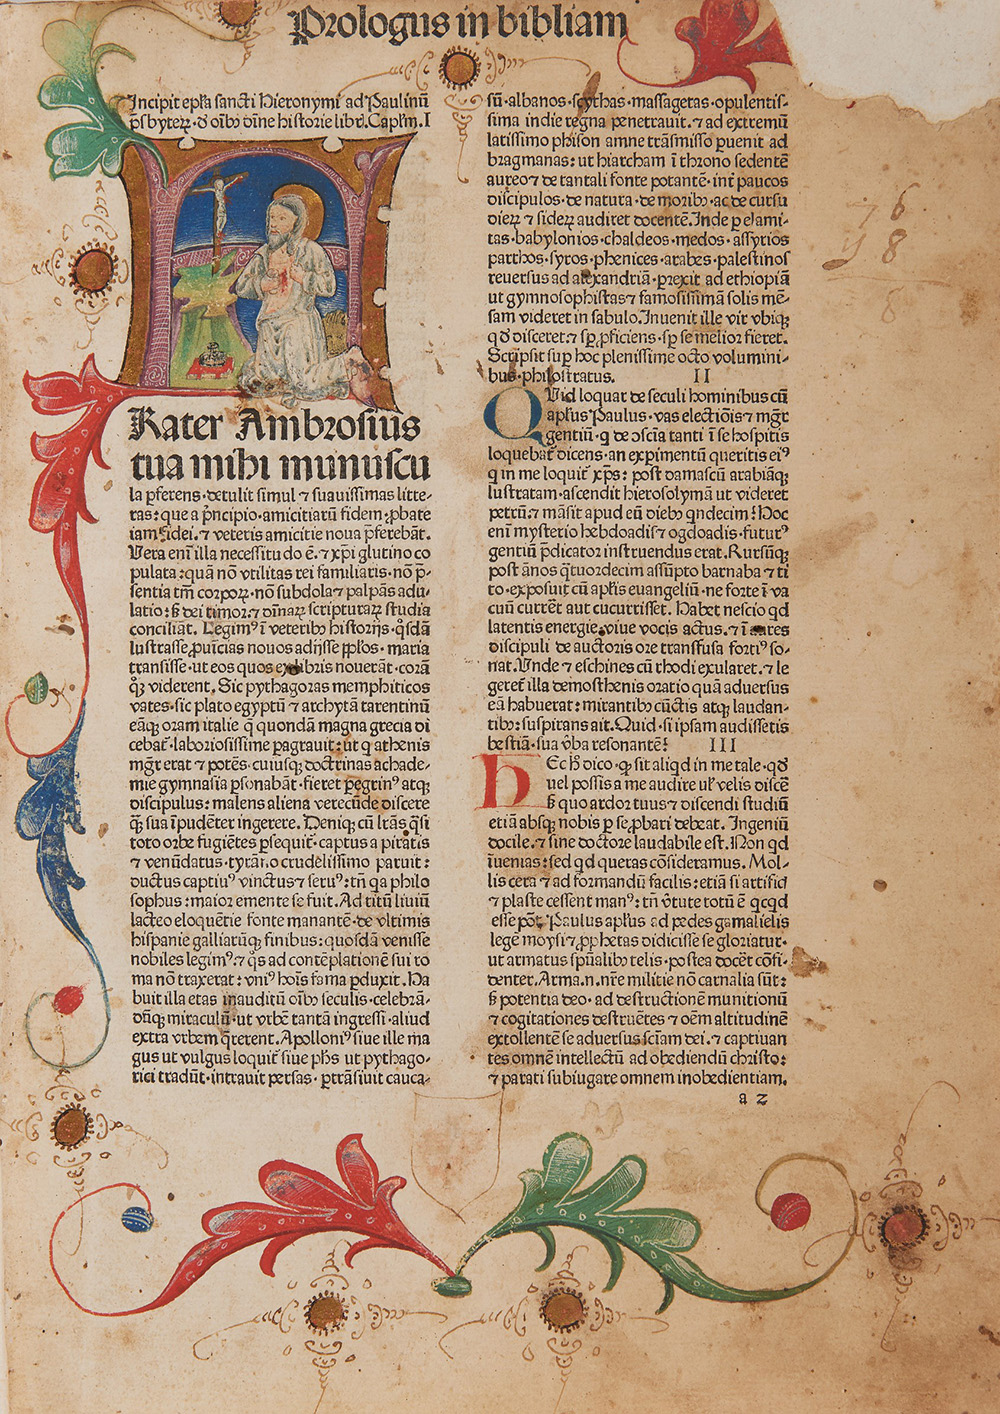 Prologus in bibliam
Incipit epľa sancti Hieronymi ad Paulinū
p̄sbyteꝝ · ď oīb⁹ diīne historie libr̄. Capľm. I
Rater Ambrosius
tua mihi munuscu
la ꝑferens · detulit simul ⁊ suauissimas litte-
ras: que a p̄ncipio · amicitiarū fidem: ꝓbate
iam fidei. ⁊ veteris amicitie noua p̄ferebāt.
Vera enī illa necessitudo ē. ⁊ xp̄i glutino co
pulata: quā nō vtilitas rei familiaris · nō p̄-
sentia tm̄ corpoꝝ · nō subdola ⁊ palpās adu-
latio: ß dei timor. ⁊ diīnaꝝ scripturaꝝ studia
conciliāt. Legim⁹ ī veterib⁹ historijs · q̊sdā
lustrasse ꝓuīcias nouos adijsse ppľos · maria
transisse · vt eos quos ex libris nouerāt · corā
q̊ꝫ viderent. Sic pythagoras memphiticos
vates · sic plato egyptū ⁊ archytā tarentinū
eāqꝫ oram italie q̄ quondā magna grecia di
cebat̄ · laboriosissime ꝑagrauit: vt q athenis
mḡr erat ⁊ potēs · cuiusqꝫ doctrinas achade-
mie gymnasia ꝑsonabāt · fieret ꝑegrin⁹ atqꝫ
discipulus: malens aliena verecūde discere
q̄ꝫ sua īpudēter ingerere. Deniqꝫ cū lr̄as q̄si
toto orbe fugiētes ꝑsequit̄ · captus a piratis
⁊ venūdatus · tyrāno crudelissimo paruit:
ductus captiu⁹ vinctus ⁊ seru⁹: tn̄ qa philo
sophus: maior emente se fuit. Ad titū liuiū
lacteo eloquētie fonte manantē · de vltimis
hispanie galliarūqꝫ finibus: quosdā venisse
nobiles legim⁹. ⁊ q̄s ad contēplationē sui ro
ma nō traxerat: vni⁹ hoīs fama ꝑduxit. Ha
buit illa etas inauditū oīb⁹ seculis · celebrā-
dūqꝫ miraculū · vt vrbē tantā ingressi · aliud
extra vrbem q̄rerent. Apolloni⁹ siue ille ma
gus vt vulgus loquit̄ siue ph̄s vt pythago-
rici tradūt · intrauit persas · ꝑtrāsiuit cauca-
sū · albanos · scythas · massagetas · opulentis-
sima indie regna penetrauit. ⁊ ad extremū
latissimo phison amne trāsmisso ꝑuenit ad
bragmanas: vt hiarcham ī throno sedentē
aureo ⁊ de tantali fonte potantē · int̄ paucos
discipulos · de natura · de morib⁹ · ac de cursu
dieꝝ ⁊ sideꝝ audiret docentē. Inde ꝑ elami-
tas · babylonios · chaldeos · medos · assyrios
parthos · syros · phenices · arabes · palestinos
reuersus ad alexandriā · ꝑrexit ad ethiopiā
vt gymnosophistas ⁊ famosissimā solis mē-
sam videret in sabulo. Inuenit ille vir vbiqꝫ
q ď disceret: ⁊ sꝑ ꝓficiens · sꝑ se melior fieret.
Scripsit suꝑ hoc plenissime octo volumini-
bus · philostratus. II
QVid loquar de seculi hominibus cū
apľus Paulus · vas electiōis ⁊ mḡr
gentiū · q de ɔscia tanti ī se hospitis
loquebat̄ dicens · an exꝑimentū queritis ei⁹
q in me loquit̄ xp̄s: post damascū arabiāqꝫ
lustratam · ascendit hierosolymā vt videret
petrū: ⁊ māsit apud eū dieb⁹ qndecim? Hoc
enī mysterio hebdoadis ⁊ ogdoadis · futur⁹
gentiū p̄dicator instruendus erat. Rursūqꝫ
post ānos q̄tuordecim assūpto barnaba ⁊ ti
to · exposuit cū apľis euangeliū · ne forte ī va
cuū curreret aut cucurrisset. Habet nescio qd
latentis energie · viue vocis actus. ⁊ ī aures
discipuli de auctoris ore transfusa forti⁹ so-
nat. Vnde ⁊ eschines cū rhodi exularet. ⁊ le
geret̄ illa demosthenis oratio quā aduersus
eā habuerat: mirantib⁹ cūctis atqꝫ laudan-
tib⁹: suspirans ait. Quid · si ipsam audissetis
bestiā · sua v̄ba resonantē? III
HEc hō dico · ꝙ sit aliqd in me tale · qď
vel possis a me audire vľ velis discē
ß quo ardor tuus ⁊ discendi studiū
etiā absqꝫ nobis ꝑ se ꝓbari debeat. Ingeniū
docile. ⁊ sine doctore laudabile est. Non qd
īuenias: sed qd queras cōsideramus. Mol-
lis cera ⁊ ad formandū facilis: etiā si artific̄
⁊ plaste cessent man⁹: tn̄ v̄tute totū ē qcqd
esse pōt. Paulus apľus ad pedes gamalielis
legē moysi ⁊ ꝓphetas didicisse se gloriatur ·
vt armatus spūalib⁹ telis · postea docēt cōfi-
denter. Arma.n.nr̄e militie nō carnalia sūt:
ß potentia deo · ad destructionē munitionū
⁊ cogitationes destruētes ⁊ oēm altitudinē
extollentē se aduersus sciam dei. ⁊ captiuan
tes omnē intellectū ad obediendū christo:
⁊ parati subiugare omnem inobedientiam.
a 2